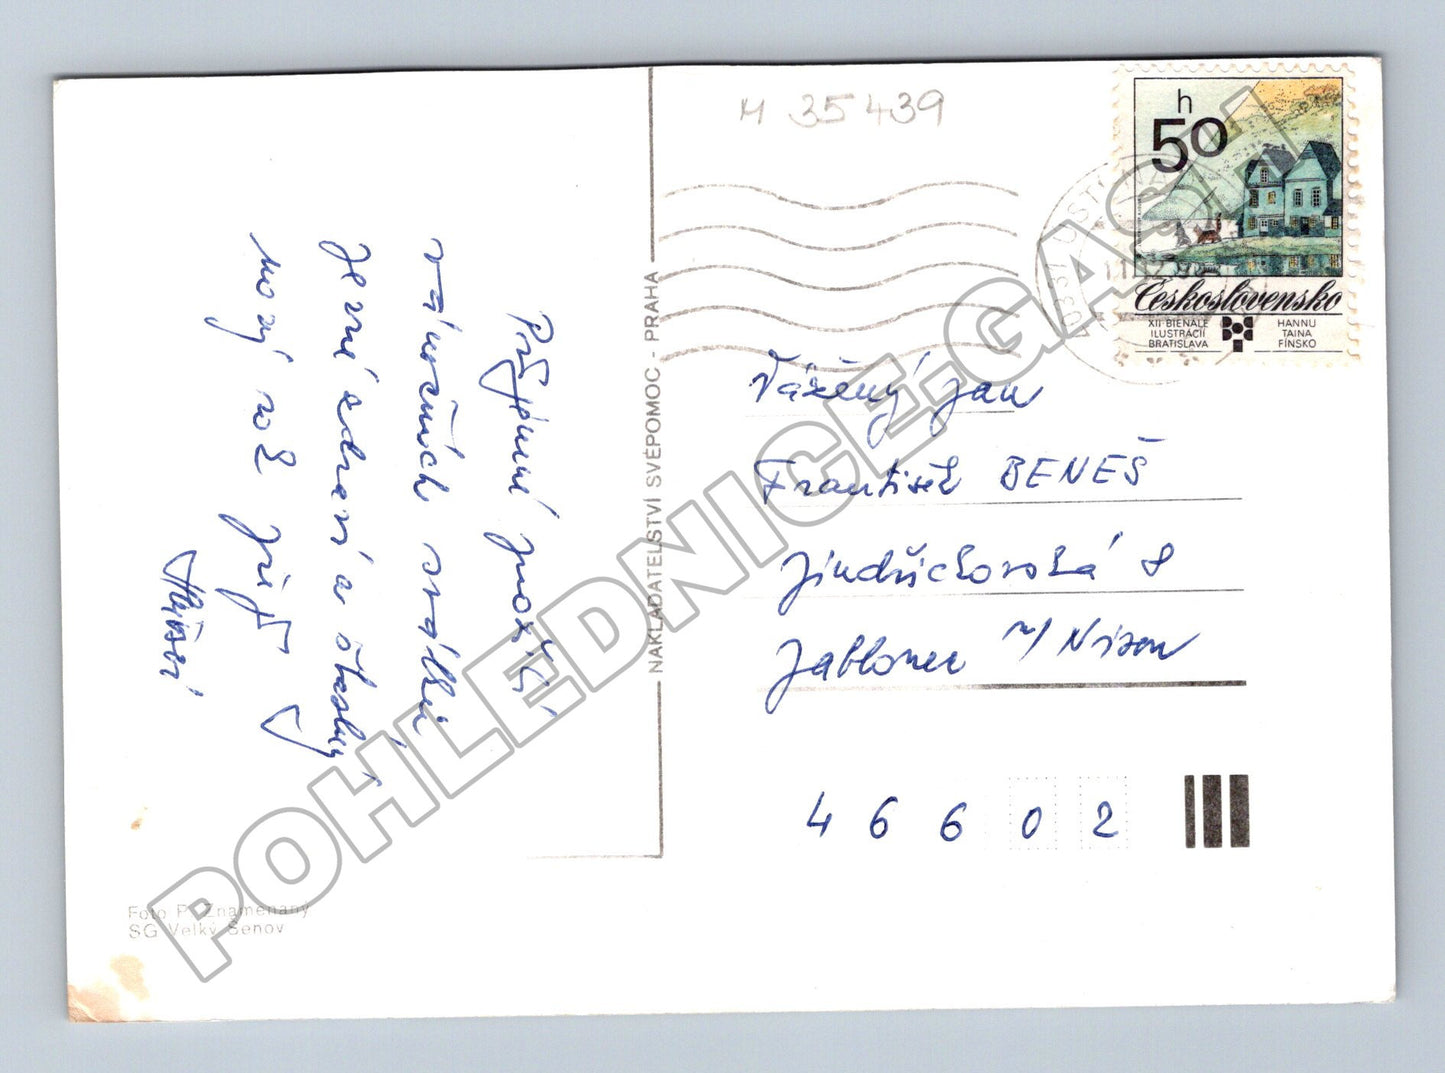 M 35439
h
50
Československo
XII BIENALE
ILUSTRACIÍ
BRATISLAVA
HANNU
TAINA
FÍNSKO
400 01 ÚSTÍ NAD
11.12.9
Příjemné prožití
vánočních svátků
pevné zdraví a šťastný
nový rok přejí
NAKLADATELSTVÍ SVÉPOMOC - PRAHA
Vážený pan
František BENEŠ
Jindřichovská 8
Jablonec n/Nisou
46602
Foto P. Znamenaný
SG Velký Šenov
POHLEDNICE-GASH